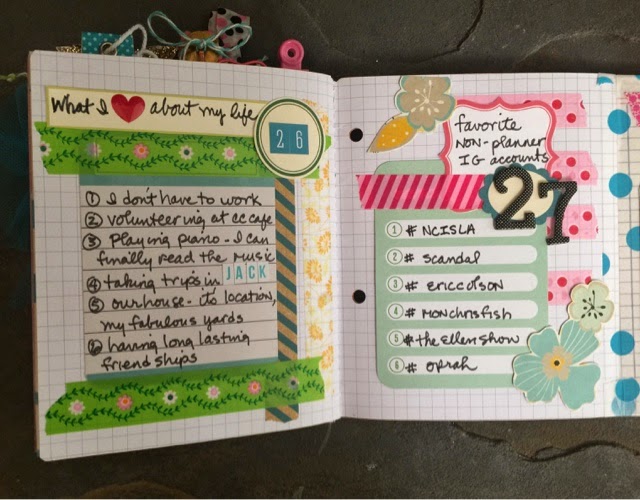 What I ❤ about my life
26
① I don't have to work
② volunteering at cc cafe
③ Playing piano - I can
finally read the music
④ taking trips in JACK
⑤ our house - its location,
my fabulous yards
⑥ having long lasting
friendships
favorite
NON-planner
IG accounts
27
① # NCISLA
② # Scandal
③ # ericcolson
④ # MONchrisfish
⑤ # the Ellen Show
⑥ # oprah